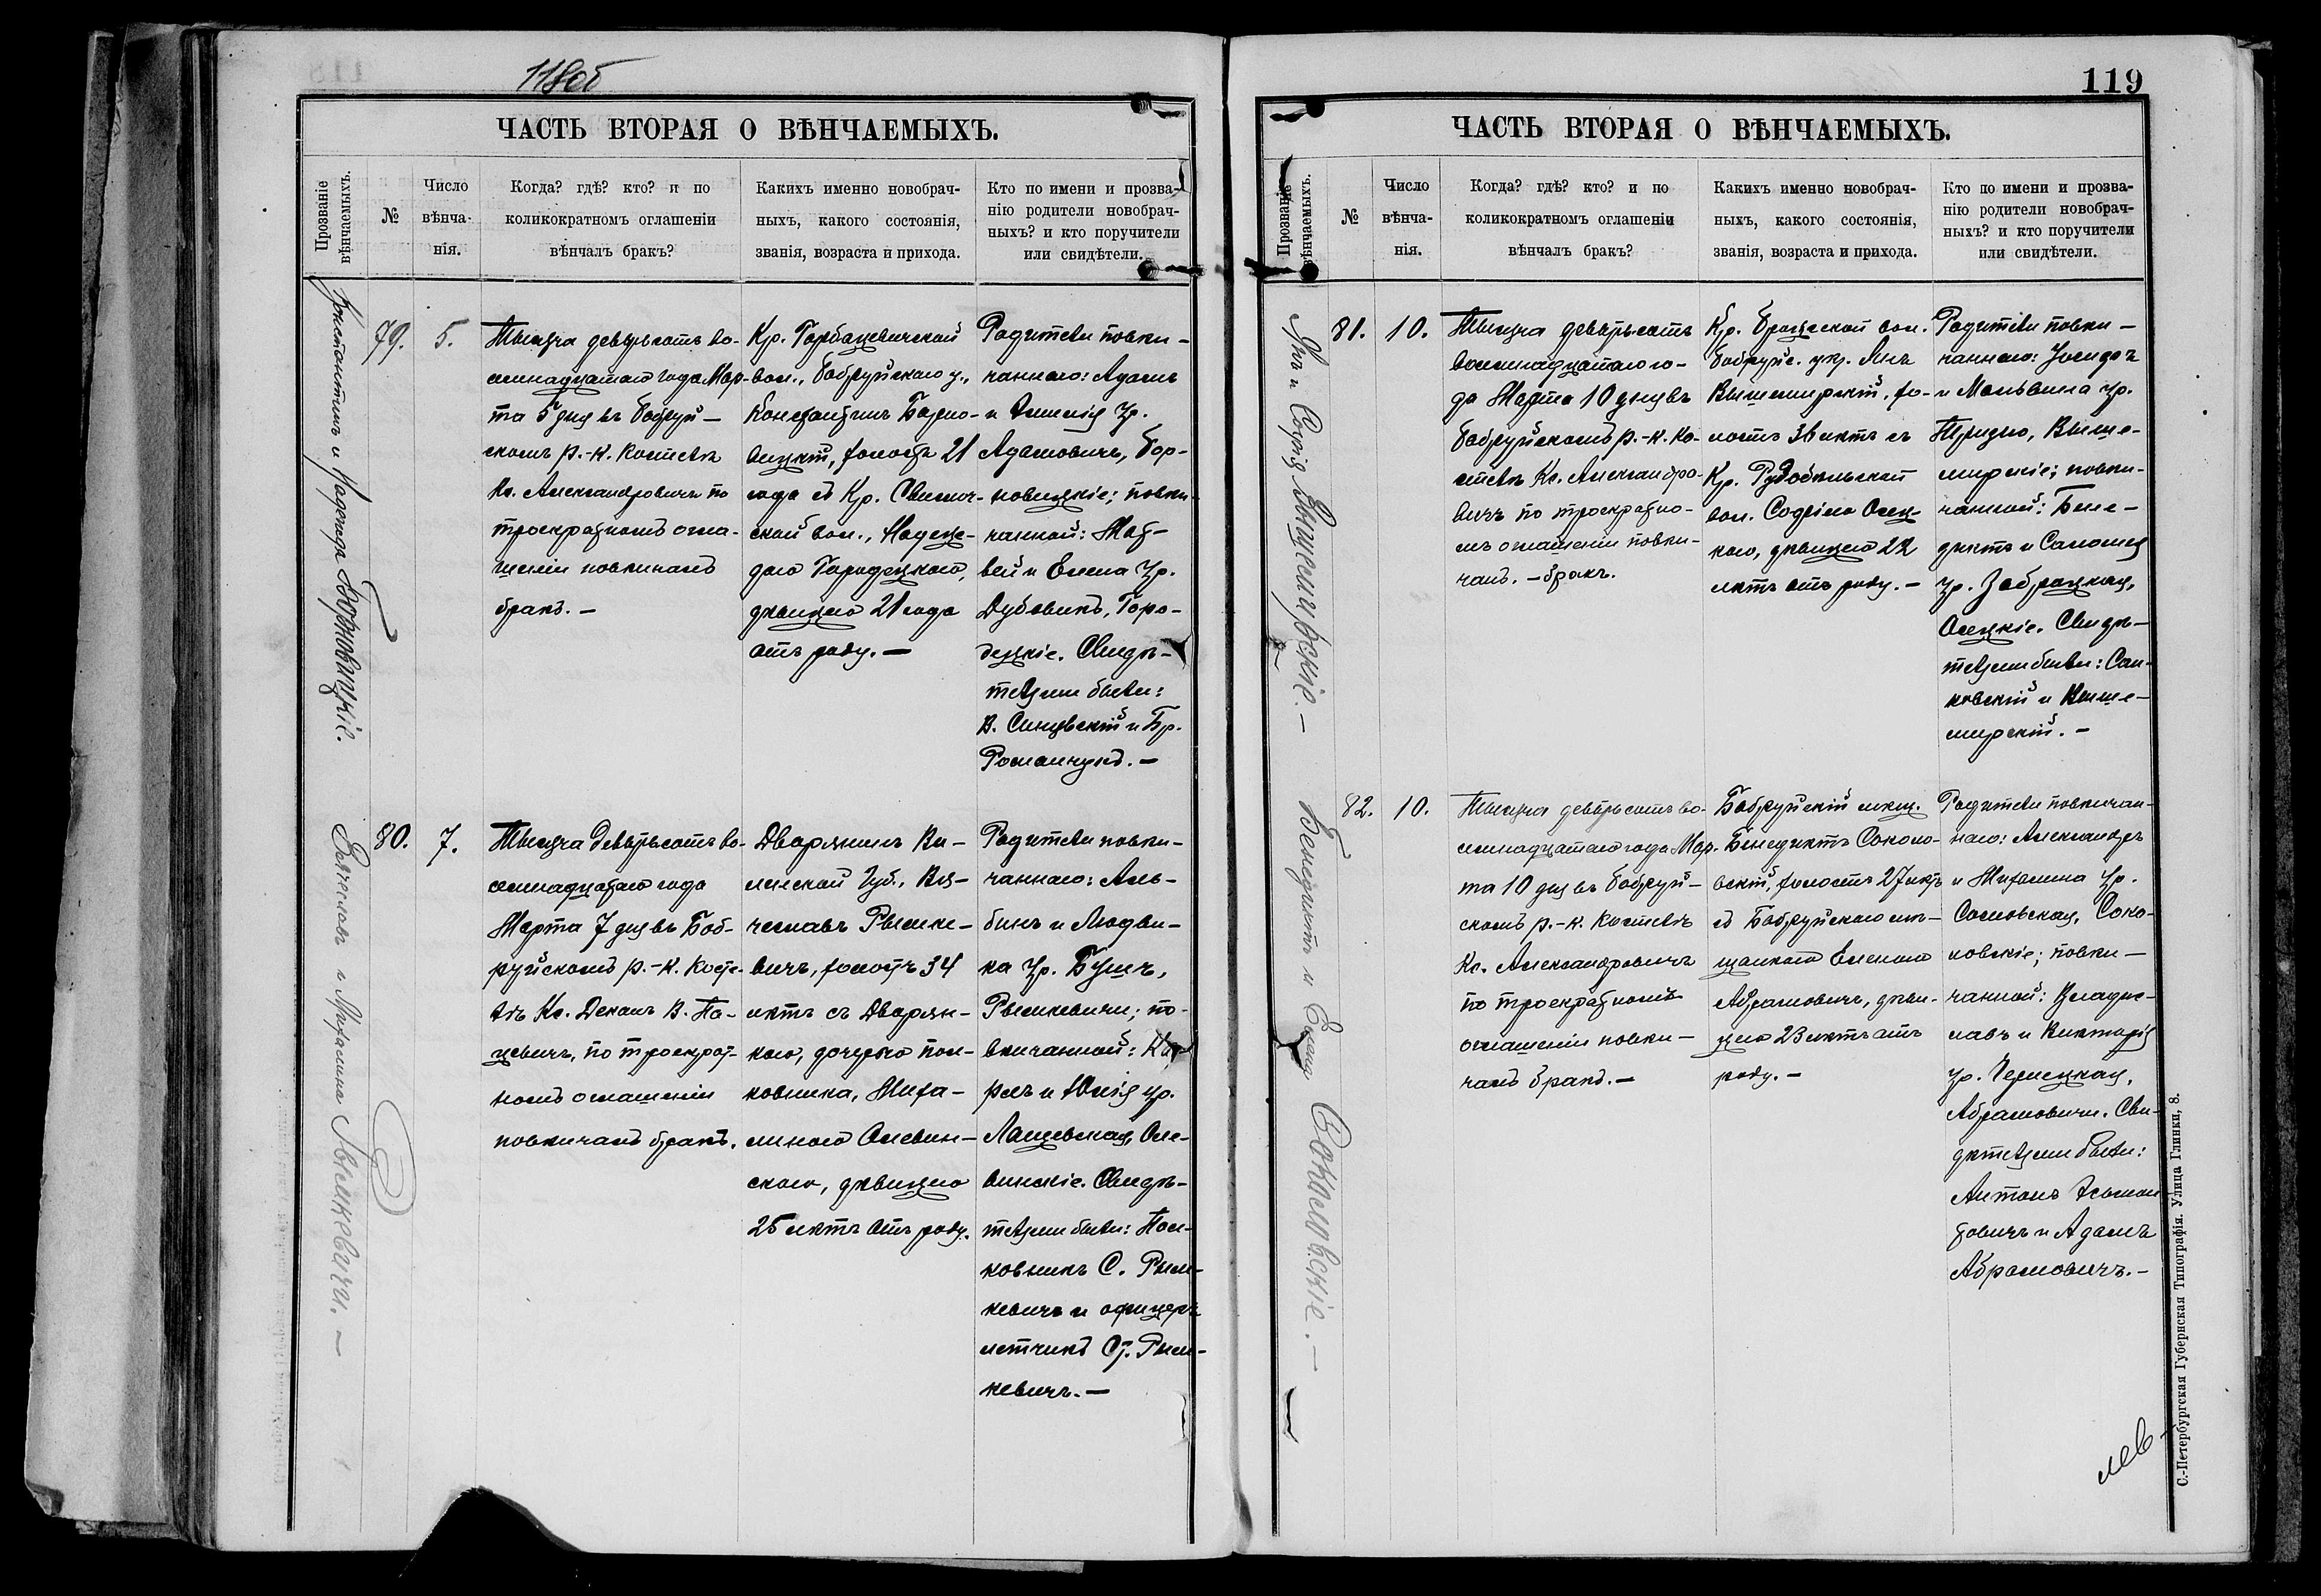 118об
ЧАСТЬ ВТОРАЯ О ВѢНЧАЕМЫХЪ.
Прозваніе
вѣнчаемыхъ.
№
Число
вѣнча-
нія.
Когда? гдѣ? кто? и по
коликократномъ оглашеніи
вѣнчалъ бракъ?
Какихъ именно новобрач-
ныхъ, какого состоянія,
званія, возраста и прихода.
Кто по имени и прозва-
нію родители новобрач-
ныхъ? и кто поручители
или свидѣтели.
Константинъ и Надежда Борновицкіе.
79.
5.
Тысяча девятьсотъ во-
семнадцатаго года Мар-
та 5 дня въ Бобруй-
скомъ р.-к. костелѣ
Кс. Александровичъ по
троекратномъ огла-
шеніи повѣнчалъ
бракъ. —
Кр. Горбацевичской
вол., Бобруйскаго у.,
Константинъ Борно-
вицкій, холостъ 21
года съ Кр. Свислоч-
ской вол., Надеж-
дою Городецкою,
дѣвицею 21 года
отъ роду. —
Родители повѣн-
чаннаго: Адамъ
и Эмилія ур.
Адамовичъ, Бор-
новицкіе; повѣн-
чанной: Мат-
вей и Елена ур.
Дубовикъ, Горо-
децкіе. Свидѣ-
телями были:
В. Синявскій и Бр.
Романчукъ. —
Вячеславъ и Михалина Рымкевичи. —
80.
7.
Тысяча девятьсотъ во-
семнадцатаго года
Марта 7 дня въ Боб-
руйскомъ р.-к. косте-
лѣ Кс. Деканъ В. Па-
цевичъ, по троекрат-
номъ оглашеніи
повѣнчалъ бракъ.
Дворянинъ Ви-
ленской Губ., Вя-
чеславъ Рымке-
вичъ, холостъ 34
лѣтъ съ Дворян-
кою, дочерью пол-
ковника, Миха-
линою Олевин-
скою, дѣвицею
25 лѣтъ отъ роду.
Родители повѣн-
чаннаго: Аль-
бинъ и Людви-
ка ур. Бушъ,
Рымкевичи; по-
вѣнчанной: Ка-
рлъ и Юлія ур.
Лащевская, Оле-
винскіе. Свидѣ-
телями были: Пол-
ковникъ С. Рым-
кевичъ и офицеръ
летчикъ Ст. Рым-
кевичъ. —
119
ЧАСТЬ ВТОРАЯ О ВѢНЧАЕМЫХЪ.
Прозваніе
вѣнчаемыхъ.
№
Число
вѣнча-
нія.
Когда? гдѣ? кто? и по
коликократномъ оглашеніи
вѣнчалъ бракъ?
Какихъ именно новобрач-
ныхъ, какого состоянія,
званія, возраста и прихода.
Кто по имени и прозва-
нію родители новобрач-
ныхъ? и кто поручители
или свидѣтели.
Янъ и Софія Вышемирскіе. —
81.
10.
Тысяча девятьсотъ
восемнадцатаго го-
да Марта 10 дня въ
Бобруйскомъ р.-к. ко-
стелѣ Кс. Александро-
вичъ по троекратно-
мъ оглашеніи повѣн-
чалъ. — бракъ.
Кр. Брожской вол.
Бобруйс. у.
Вышемирскій, хо-
лостъ лѣтъ съ
Кр. Рудобѣльской
вол. Софіею Осец-
кою, дѣвицею 22
лѣтъ отъ роду. —
Родители повѣн-
чаннаго:
и Мальвина ур.
Выше-
мирскіе; повѣн-
чанной: Бене-
диктъ и Саломея
ур. Забродская,
Осецкіе. Свидѣ-
телями были: Сан-
ковскій и Выше-
мирскій. —
Бенедиктъ и Елена Соколовскіе. —
82.
10.
Тысяча девятьсотъ во-
семнадцатаго года Мар-
та 10 дня въ Бобруй-
скомъ р.-к. костелѣ
Кс. Александровичъ
по троекратномъ
оглашеніи повѣн-
чалъ бракъ. —
Бобруйскій мѣщ.
Бенедиктъ Соколо-
вскій, холостъ 27 лѣтъ
съ Бобруйскою мѣ-
щанкою Еленою
Абрамовичъ, дѣви-
цею 23 лѣтъ отъ
роду. —
Родители повѣнчан-
наго: Александръ
и Михалина ур.
Соко-
ловскіе; повѣн-
чанной: Владис-
лавъ и Викторія
ур.
Абрамовичи. Сви-
дѣтелями были:
Антонъ
и Адамъ
Абрамовичъ. —
С.-Петербургская Губернская Типографія. Улица Глинки, 8.